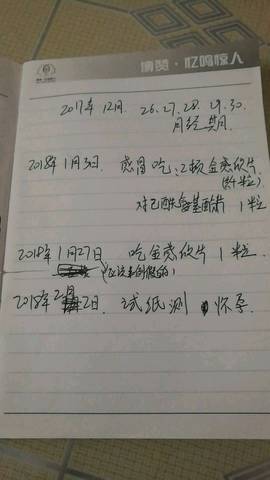 博赞·忆鸣惊人
2017年12月. 26.27.28.29.30.
月经期.
2018年1月3日. 感冒吃: 2颗金感欣片.
片 1粒
2018年1月27日 吃金感欣片 1粒.
2018年2月2日. 试纸测 怀孕.